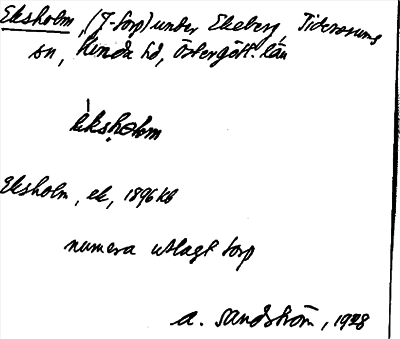 Eksholm, (J-torp) under Ekeberg, Tidersrums
sn, Kinda hd, Östergötl. län
èksho̩lm
Eksholm, ek, 1896 kb
numera utlagt torp
A. Sandström, 1928